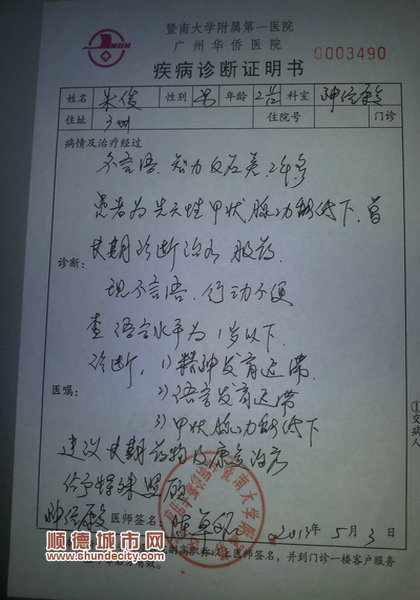 暨南大学附属第一医院
广州华侨医院
0003490
疾病诊断证明书
姓名 朱俊 性别 男 年龄 2岁 科室 神经康复
住址 广州 住院号 门诊
病情及治疗经过
不言语、智力反应差2年多
患者为先天性甲状腺功能低下,曾
长期诊断治疗 服药
诊断:
现不言语、行动不便
查语言水平为1岁以下
诊断:1)精神发育迟滞
医嘱: 2)语言发育迟滞
3)甲状腺功能低下
建议长期药物及康复治疗
给予特殊照顾
神经康复 医师签名: 2013年5月3日
以上医师签名,并到门诊一楼客户服务
①交病人
顺德城市网
www.shundecity.com